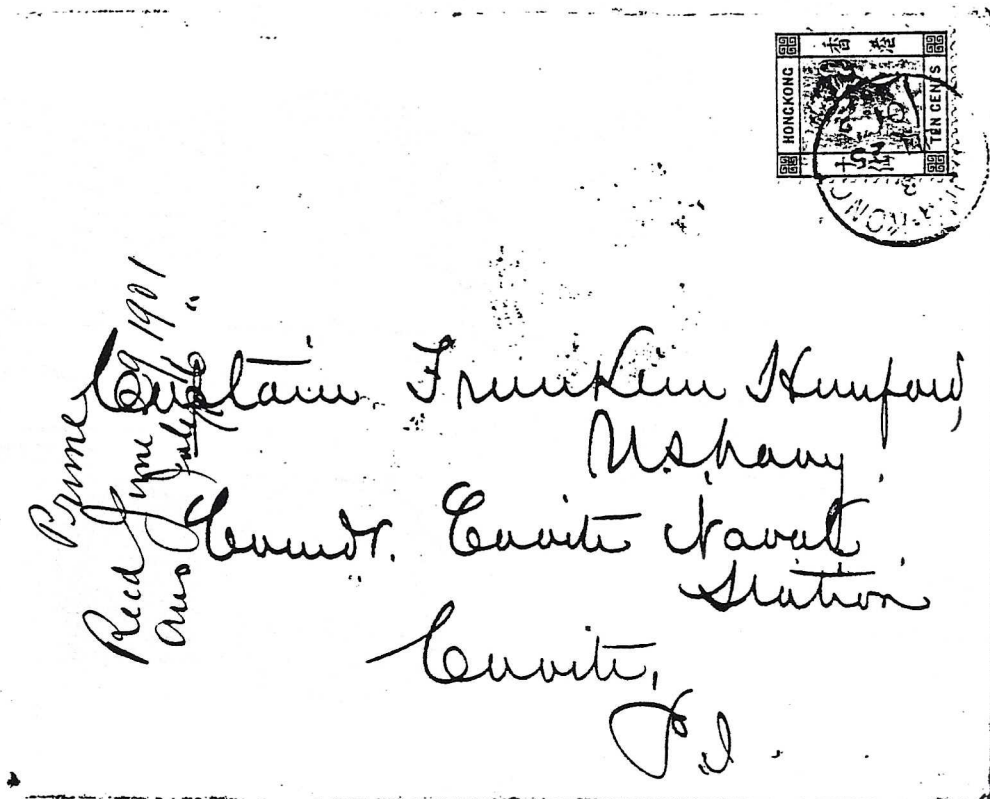 香港
HONGKONG
TEN CENTS
Captain Franklin Hanford,
U.S. Navy
Comdt. Cavite Naval
Station
Cavite,
P.I.
Prime
Recd June 29, 1901
Ans July